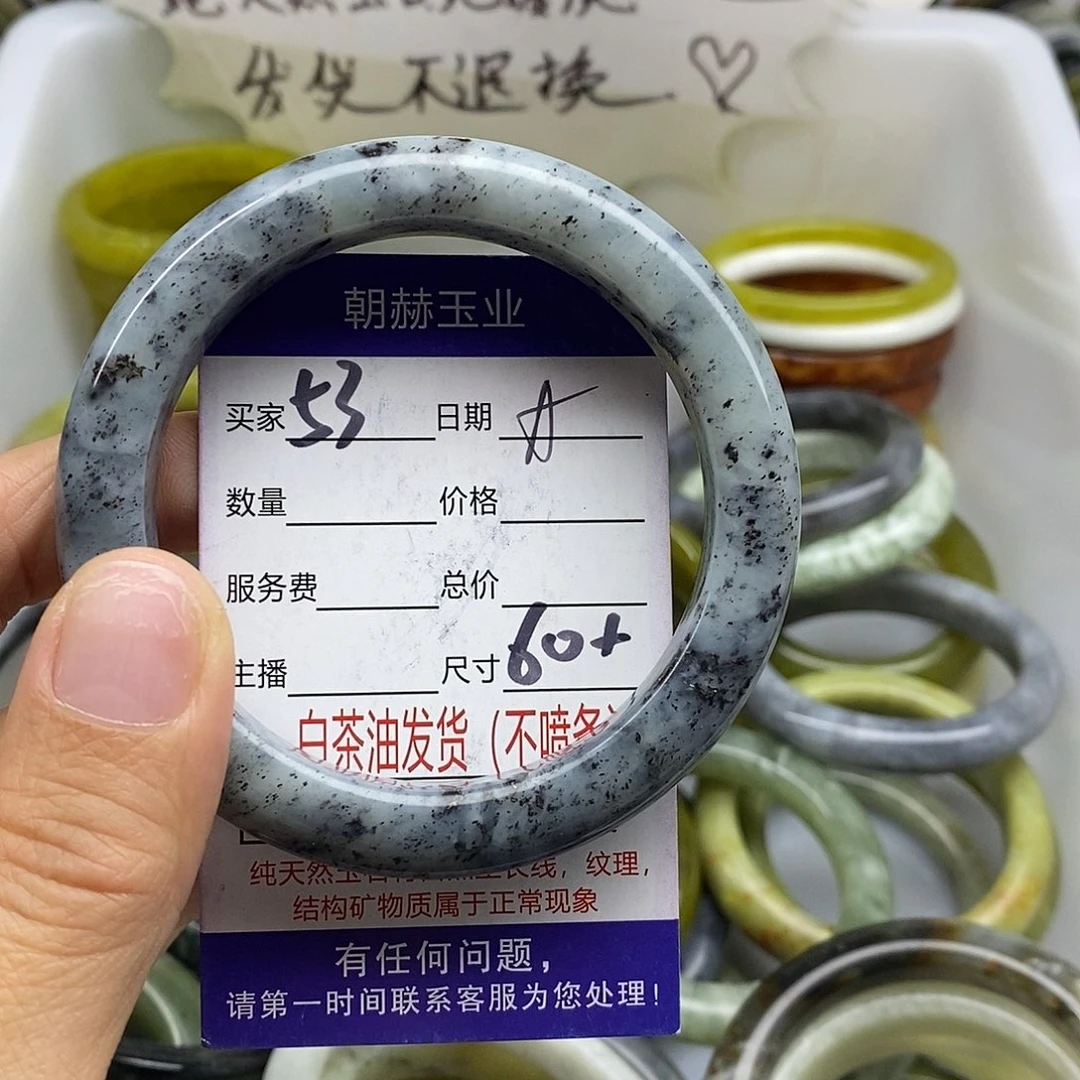 发货不退换
朝赫玉业
买家 53 日期
数量 价格
服务费 总价
主播 尺寸 60+
白茶油发货（不喷
纯天然玉石 长线，纹理，
结构矿物质属于正常现象
有任何问题，
请第一时间联系客服为您处理！